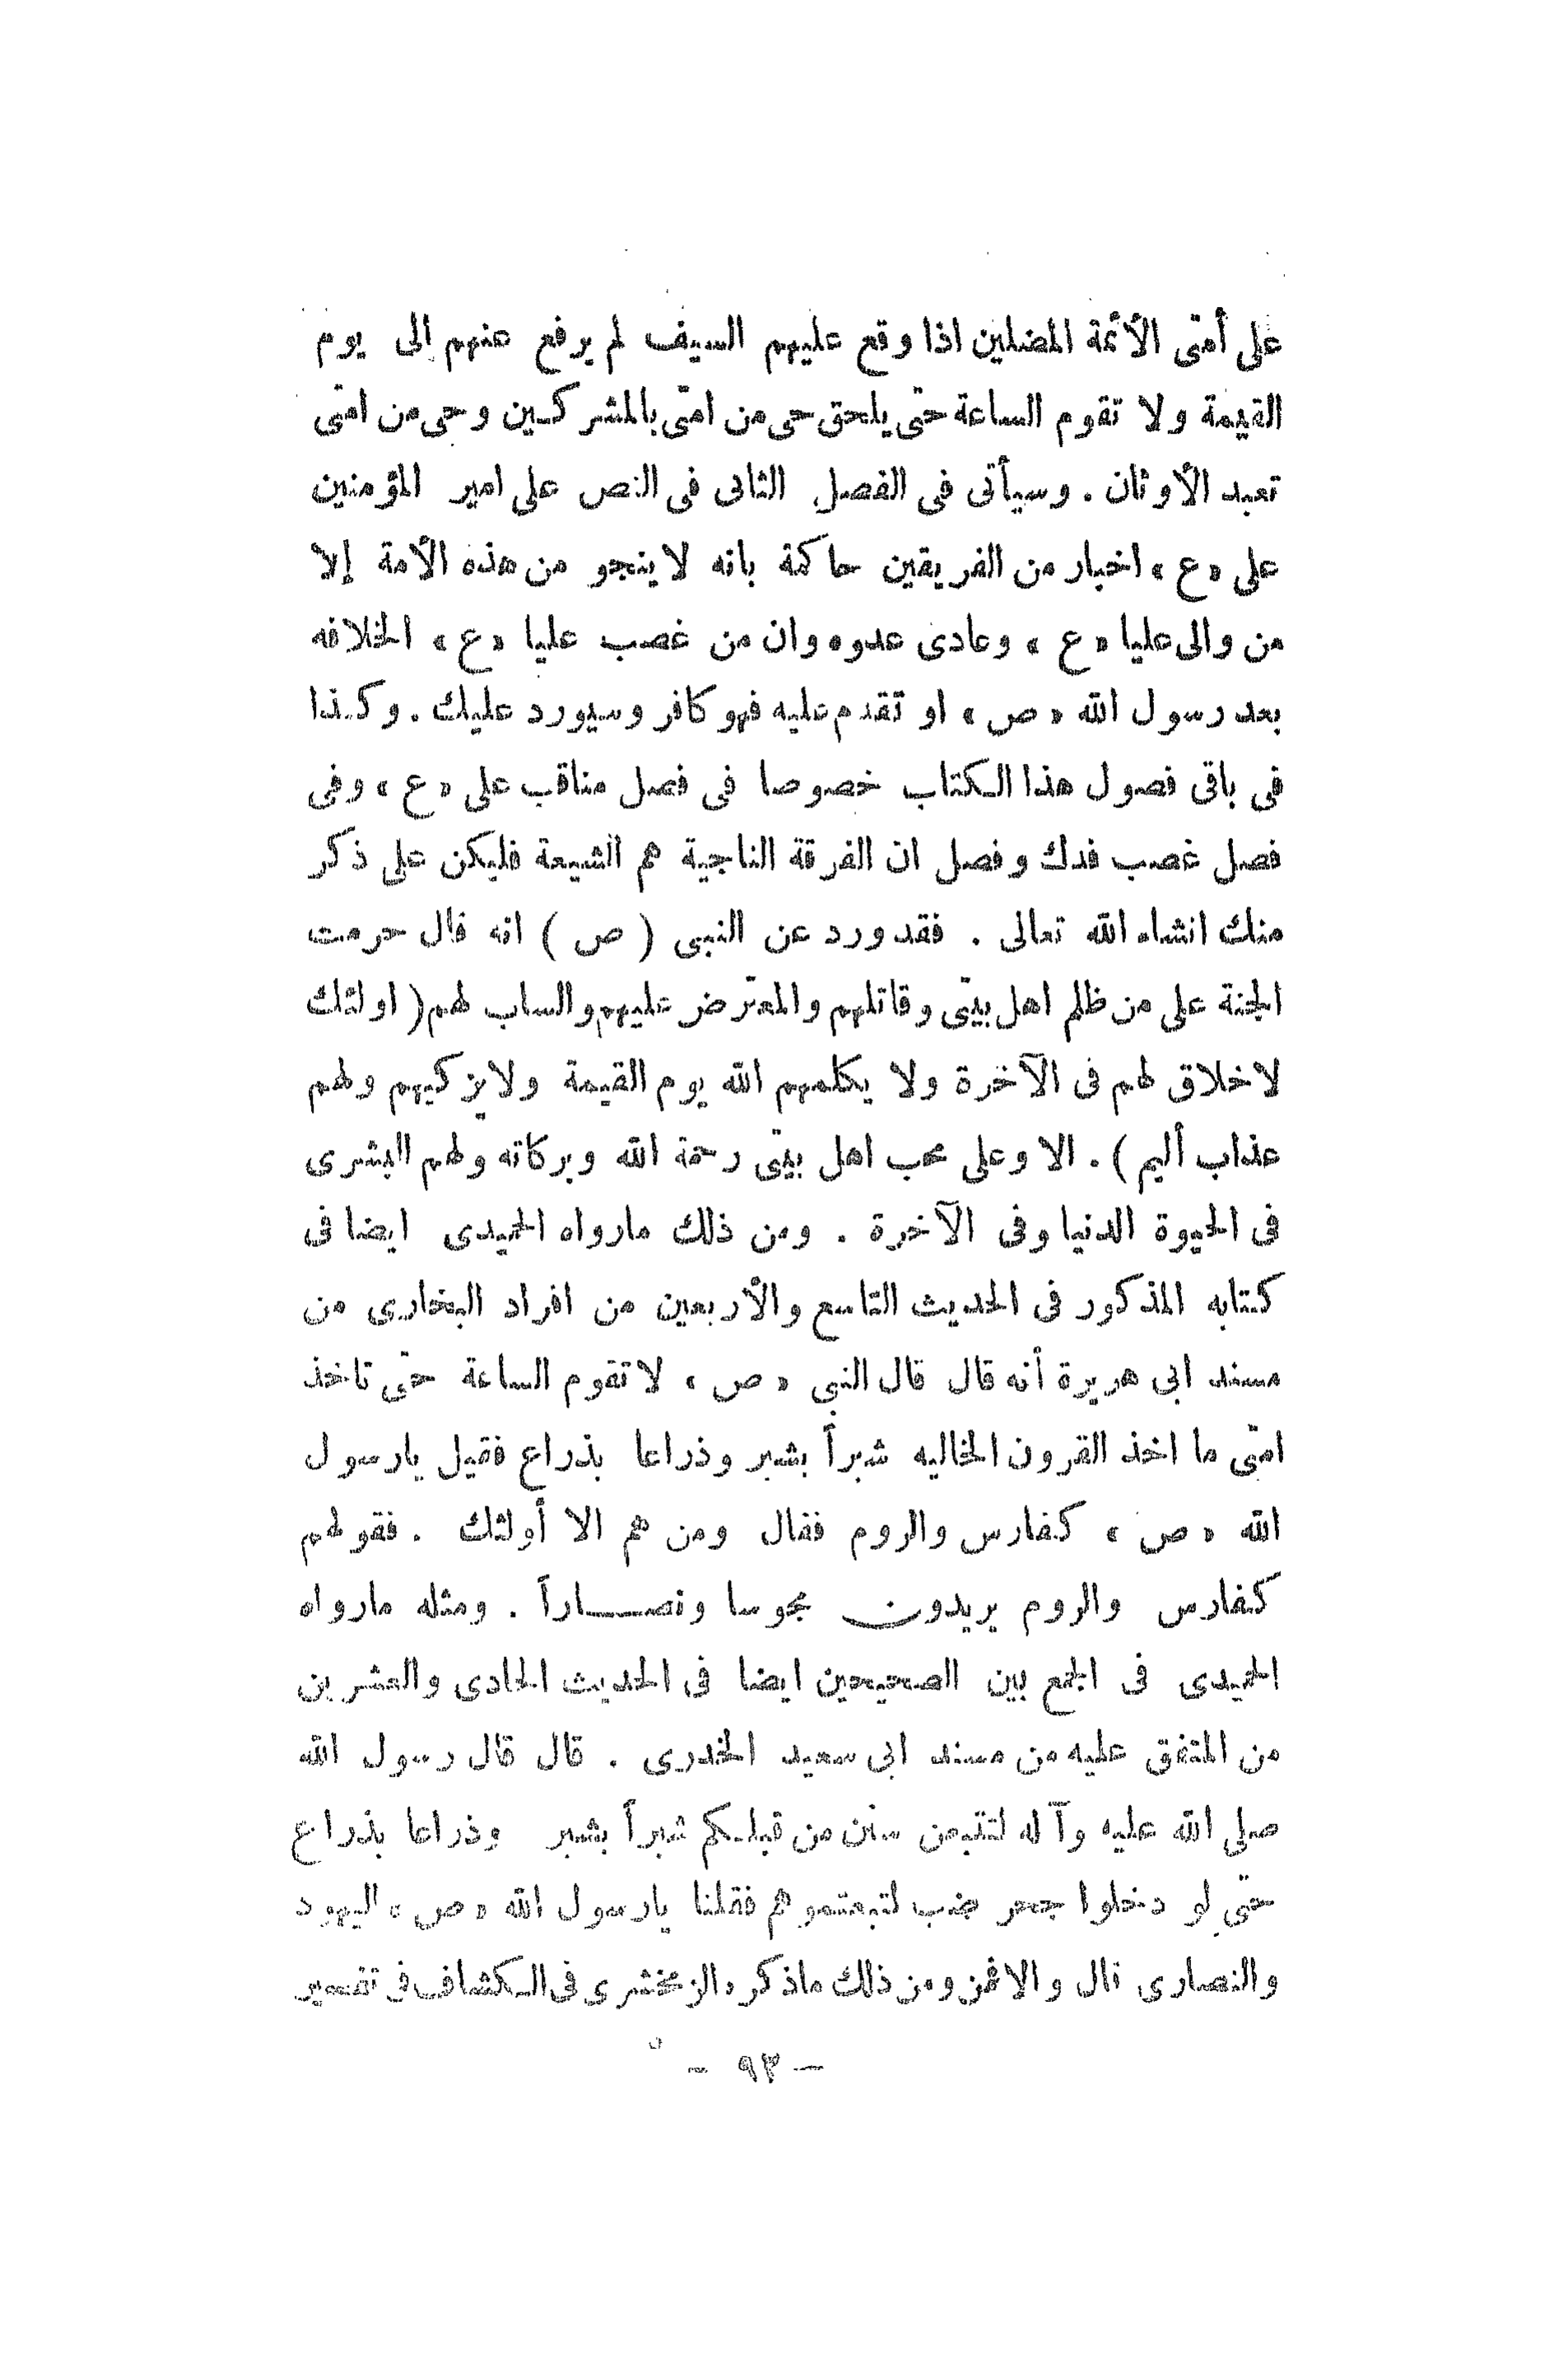 على أمتى الأئمة المضلين اذا وقع عليهم السيف لم يرفع عنهم الى يوم
القيمة ولا تقوم الساعة حتى يلحق حى من امتى بالمشركين وحى من امتى
تعبد الأوثان . وسيأتى فى الفصل الثانى فى النص على امير المؤمنين
على «ع» اخبار من الفريقين حاكمة بانه لا ينجو من هذه الأمة إلا
من والى عليا «ع» وعادى عدوه وان من غصب عليا «ع» الخلافه
بعد رسول الله «ص» او تقدم عليه فهو كافر وسيورد عليك . وكذا
فى باقى فصول هذا الكتاب خصوصا فى فصل مناقب على «ع» وفى
فصل غصب فدك وفصل ان الفرقة الناجية هم الشيعة فليكن على ذكر
منك انشاء الله تعالى . فقد ورد عن النبى ( ص ) انه قال حرمت
الجنة على من ظلم اهل بيتى وقاتلهم والمعترض عليهم والساب لهم ( اولئك
لاخلاق لهم فى الآخرة ولا يكلمهم الله يوم القيمة ولا يزكيهم ولهم
عذاب أليم ) . الا وعلى محب اهل بيتى رحمة الله وبركاته ولهم البشرى
فى الحيوة الدنيا وفى الآخرة . ومن ذلك مارواه الحميدى ايضا فى
كتابه المذكور فى الحديث التاسع والأربعين من افراد البخارى من
مسند ابى هريرة أنه قال قال النبى «ص» لا تقوم الساعة حتى تاخذ
امتى ما اخذ القرون الخاليه شبراً بشبر وذراعا بذراع فقيل يارسول
الله «ص» كفارس والروم فقال ومن هم الا أولئك . فقولهم
كفارس والروم يريدون مجوسا ونصـــاراً . ومثله مارواه
الحميدى فى الجمع بين الصحيحين ايضا فى الحديث الحادى والعشرين
من المتفق عليه من مسند ابى سعيد الخدرى . قال قال رسول الله
صلى الله عليه وآله لتتبعن سنن من قبلكم شبراً بشبر وذراعا بذراع
حتى لو دخلوا جحر ضب لتبعتموهم فقلنا يارسول الله «ص» اليهود
والنصارى قال والا فمن ومن ذلك ماذكره الزمخشرى فى الكشاف فى تفسير
- ٩٣ -